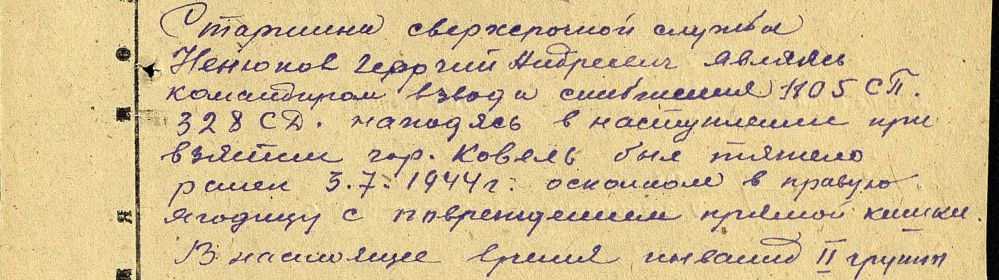 Старшина сверхсрочной службы
Ненюков Георгий Андреевич являясь
командиром взвода снабжения 1105 СП.
328 СД. находясь в наступлении при
взятии гор. Ковель был тяжело
ранен 3.7.1944г. осколком в правую
ягодицу с повреждением прямой кишки.
В настоящее время инвалид II группы